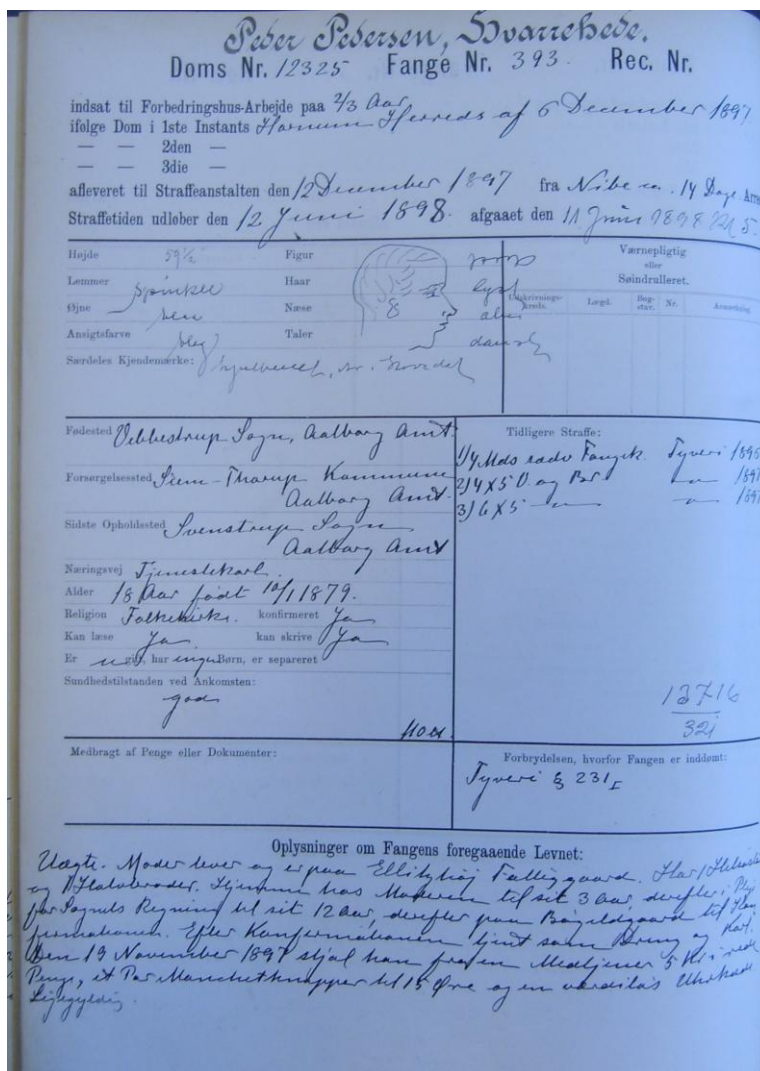 Peder Pedersen, Svarrehede.
Doms Nr. 12325 Fange Nr. 393. Rec. Nr.
indsat til Forbedringshus-Arbejde paa 2/3 Aar
ifølge Dom i 1ste Instants Hornum Herreds af 6 December 1897
— — 2den —
— — 3die —
afleveret til Straffeanstalten den 12 December 1897 fra Nibe 14 Dage Arre
Straffetiden udløber den 12 Juni 1898. afgaaet den 11 Juni 1898 5.
Højde 59½ Figur
Lemmer spinkle Haar lyst
Øjne Næse
Ansigtsfarve bleg Taler dansk
Særdeles Kjendemærke:
Værnepligtig
eller
Søindrulleret.
Udskrivnings-
kreds. Lægd. Bog-
stav. Nr. Anmærkning
8
Fødested Vebbestrup Sogn, Aalborg Amt.
Forsørgelsessted Siem-Thorup Kommune
Aalborg Amt.
Sidste Opholdssted Svenstrup Sogn
Aalborg Amt
Næringsvej Tjenestekarl.
Alder 18 Aar født 10/1 1879.
Religion Folkekirke. konfirmeret Ja
Kan læse Ja kan skrive Ja
Er ugift, har ingen Børn, er separeret
Sundhedstilstanden ved Ankomsten:
god
Tidligere Straffe:
1/4 Mds sædv Fangek. Tyveri
2/4 X 5 V og Br — "
3/6 X 5 — " — — " —
13716
321
Medbragt af Penge eller Dokumenter:
Forbrydelsen, hvorfor Fangen er inddømt:
Tyveri § 231 I
Oplysninger om Fangens foregaaende Levnet:
Uægte. Moder lever og er paa Ellitshøj Fattiggaard. Har 1
og 1 Halvbroder. Hjemme hos Moderen til sit 3 Aar, derefter i
for Sognets Regning til sit 12 Aar, derefter paa Bøgildgaard til Kon
firmationen. Efter Konfirmationen tjent som Dreng og Karl.
Den 19 November 1897 stjal han fra en Medtjener 5 Kr i rede
Penge, et Par Manchetknapper til 15 Øre og en værdiløs Uhrkæde
Ligegyldig.